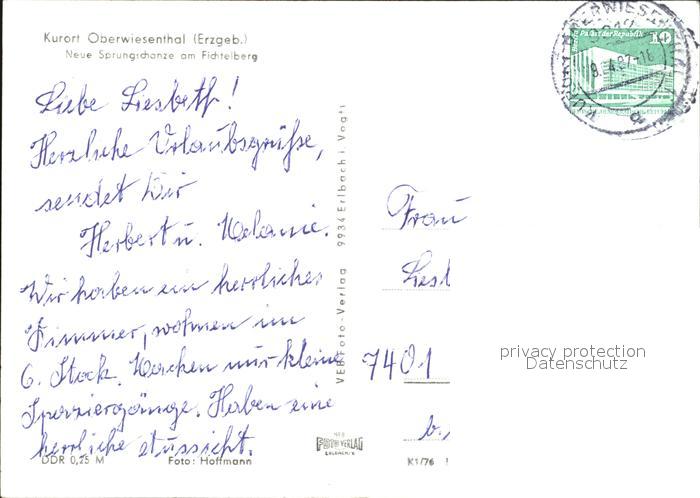 Kurort Oberwiesenthal (Erzgeb.)
Neue Sprungschanze am Fichtelberg
Liebe Liesbeth!
Herzliche Urlaubsgrüße,
sendet Dir
Herbert u. Melanie.
Wir haben ein herrliches
Zimmer, wohnen im
6. Stock. Machen nur kleine
Spaziergänge. Haben eine
herrliche Aussicht.
DDR 0,25 M
Foto: Hoffmann
VEB Foto-Verlag 9934 Erlbach i. Vogtl
Palast der Republik
10
Frau
7401
privacy protection
Datenschutz
b.
VEB
FOTO VERLAG
ERLBACH/V.
K1/76